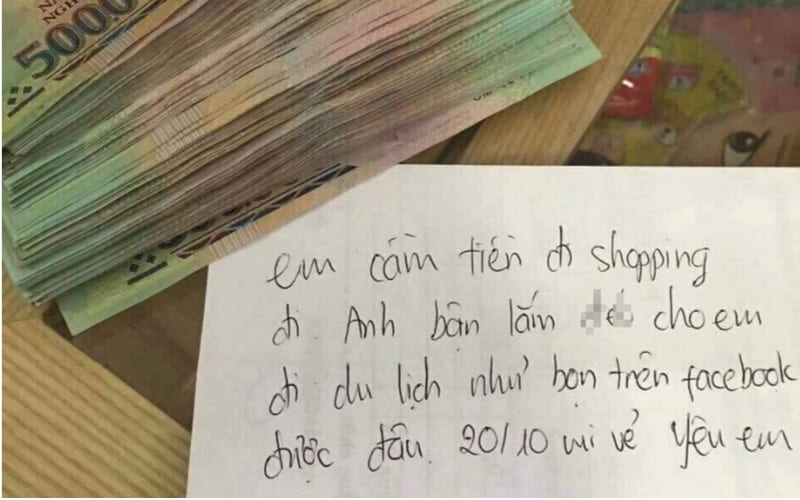 5000
em cầm tiền đi shopping
đi. Anh bận lắm cho em
đi du lịch như bọn trên facebook
được đâu. 20/10 vui vẻ yêu em